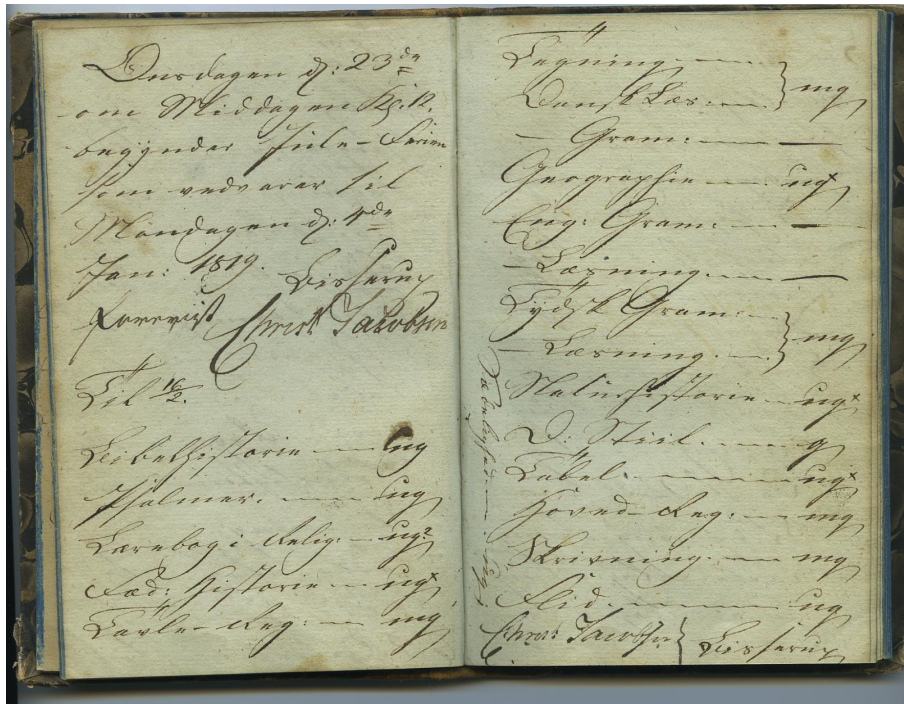 Onsdagen d: 23de
om Middagen Kl: 12,
begynder Jule-Ferien
som vedvarer til
Mandagen d: 4de
Jan: 1819.
Lisserup
Forevist Christ Jacobsen
Til 16/2.
Bibelhistorie — ug
Psalmer. — ug
Lærebog i Relig: — ug?
Fæd: Historie — ugx
Tavle-Reg: — mg
Tegning. — } mg
Dansk Læs: —
— Gram: — —
Geographie — ugx
Eng: Gram: — —
— Læsning. — —
Tydsk Gram: — } mg
— Læsning. —
Naturhistorie — ugx
D: Stiil. — g
Tabel. — ugx
Hoved-Reg: — mg
Skrivning. — mg
Flid. — ug
Christ Jacobsen } Lisserup
— ug